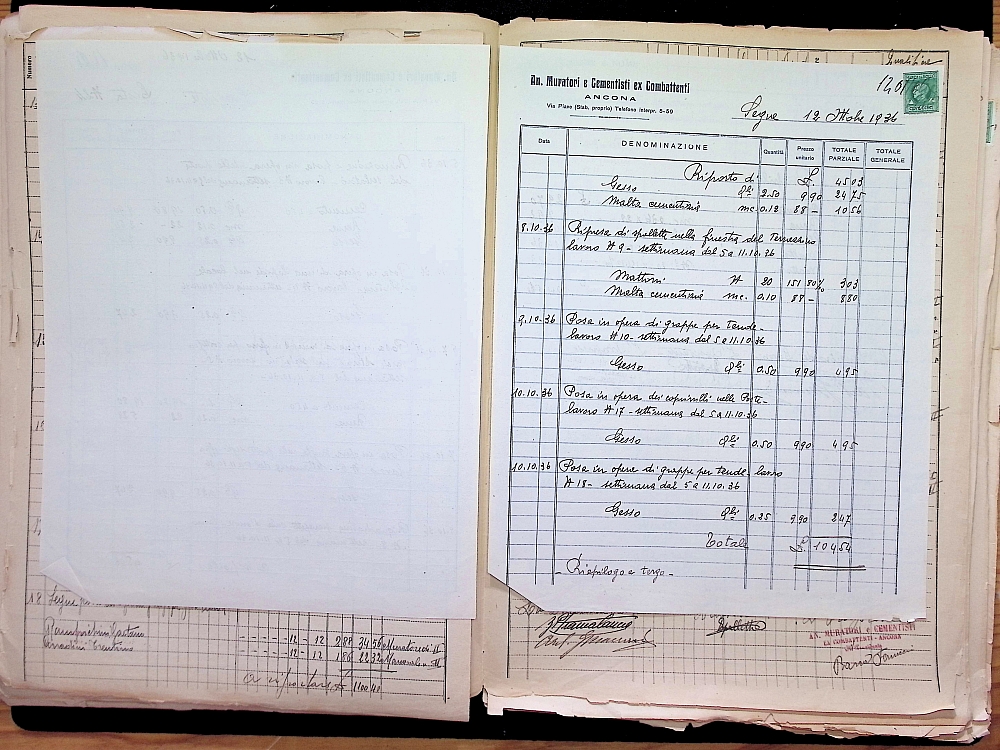 Numero
18 Segue
12 - 12 2,88 34 56 Muratore di II
12 - 12 1,86 22 32 Manovale
a riportare £ 1100 41
Qualifiche
An. Muratori e Cementisti ex Combattenti
ANCONA
Via Piave (Stab. proprio) Telefono interpr. 5-59
Segue 12 Ottobre 1936
Data DENOMINAZIONE Quantità Prezzo unitario TOTALE PARZIALE TOTALE GENERALE
Riporto di £. 45 03
Gesso Qli 2.50 9 90 24 75
Malta cementizia mc. 0.12 88 - 10 56
8.10.36 Ripresa di spallette nella finestra del Terrazzino
lavoro N 9 - settimana dal 5 a 11.10.36
Mattoni N 20 151 80 % 3 03
Malta cementizia mc. 0.10 88 - 8 80
9.10.36 Posa in opera di grappe per tende -
lavoro N 10 - settimana dal 5 a 11.10.36
Gesso Qli 0.50 9 90 4 95
10.10.36 Posa in opera dei coprirulli nelle Porte -
lavoro N 17 - settimana dal 5 a 11.10.36
Gesso Qli 0.50 9 90 4 95
10.10.36 Posa in opera di grappe per tende - lavoro
N 18 - settimana dal 5 a 11.10.36
Gesso Qli 0.25 9 90 2 47
Totale £. 104 54
- Riepilogo a tergo -
AN. MURATORI e CEMENTISTI
EX COMBATTENTI - ANCONA